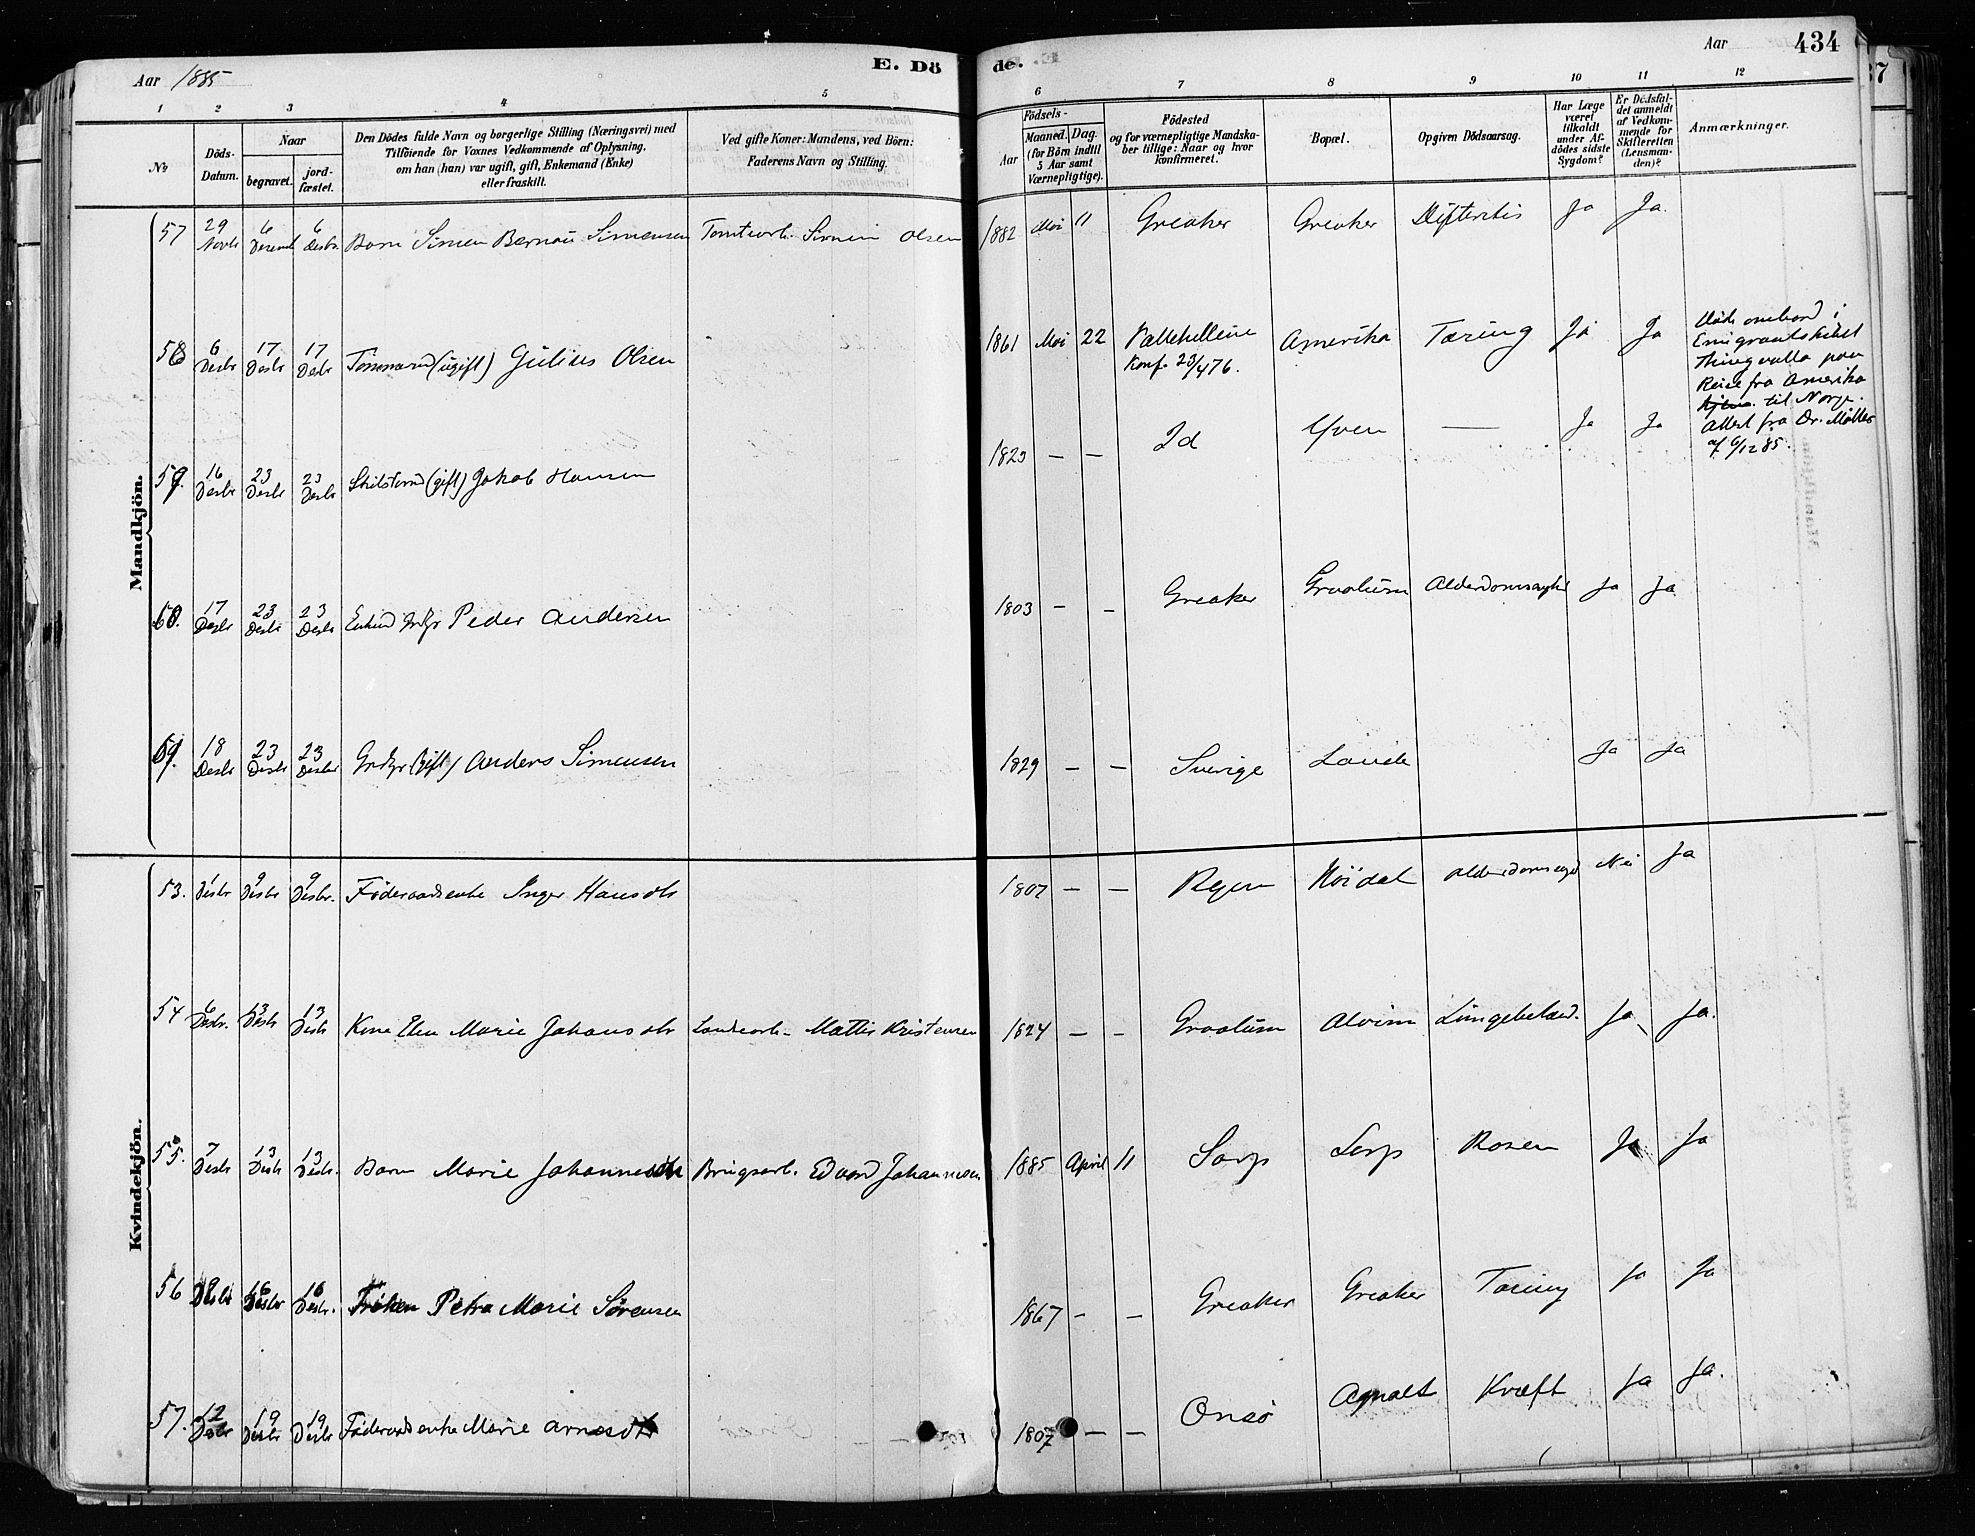 Aar 1885
E. Dö
de.
Aar
434
1 2 3 4 5 6 7 8 9 10 11 12
No
Döds-
Datum.
Naar
begravet.
jord-
fæstet.
Den Dödes fulde Navn og borgerlige Stilling (Næringsvei) med
Tilföiende for Voxnes Vedkommende af Oplysning,
om han (hun) var ugift, gift, Enkemand (Enke)
eller fraskilt.
Ved gifte Koner: Mandens, ved Börn:
Faderens Navn og Stilling.
Födsels-
Aar
Maaned.
Dag.
(for Börn indtil
5 Aar samt
Værnepligtige).
Födested
og for værnepligtige Mandska-
ber tillige: Naar og hvor
konfirmeret.
Bopæl.
Opgiven Dödsaarsag.
Har Læge
været
tilkaldt
under Af-
dödes sidste
Sygdom?
Er Dödsfal-
det anmeldt
af Vedkom-
mende for
Skifteretten
(Lensman-
den)?
Anmærkninger.
Mandkjön.
57 29 Novbr 6 Decemb 6 Decbr. Barn Simen Bernau Simensen Tomtearb. Simen Olsen 1882 Mai 11 Greaker Greaker Difteritis Ja Ja.
58 6 Decbr 17 Decbr 17 Decbr Tömmermd (ugift) Julius Olsen 1861 Mai 22 Kallekilleine Amerika Tæring Ja Ja
Konf. 23/4 76.
Död ombord i
Emigrantskibet
Thingvalla paa
Reise fra Amerika
hjem til Norge.
Attest fra Dr. Møller
af 6/12 85.
59. 16 Decbr 23 Decbr 23 Decbr (gift) Jakob Hansen 1823 — — Id Yven — Ja Ja
60. 17 Decbr 23 Decbr 23 Decbr Enkmd Grdbr Peder Andersen 1803 — — Greaker Graalum Alderdomssvaghed Ja Ja
61. 18 Decbr 23 Decbr 23 Decbr Grdbr (gift) Anders Simensen 1829 — — Sverige Lande Ja Ja
Kvindekjön.
53. 1 Decbr 9 Decbr 9 Decbr. Föderaadsenke Inger Hansdtr 1807 — — Rygen Nöidal Alderdomssvagh Nei Ja
54 6 Decbr. 13 Decbr 13 Decbr Kone Elen Marie Johansdtr Landearb. Mathis Kristensen 1824 — — Graalum Alvim Lungebetænd. Ja Ja.
55. 7 Decbr 13 Decbr 13 Decbr. Barn Marie Johannesdtr Brugsarb. Edvard Johannesen. 1885 April 11 Sarp Sarp Rosen Ja Ja
56 9 Decbr 16 Decbr 16 Decbr. Fröken Petra Marie Sørensen 1867 — — Greaker Greaker Tæring Ja Ja
57. 12 Decbr 19 Decbr 19 Decbr Föderaadsenke Marie Arnesdtr 1807 — — Onsö Agnalt Kræft Ja Ja.